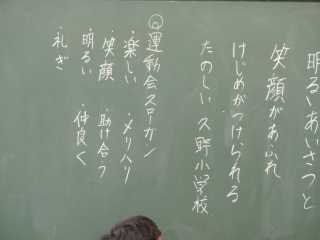 明るいあいさつと
笑顔があふれ
けじめがつけられる
たのしい久野小学校
◎運動会スローガン
・楽しい ・メリハリ
・笑顔 ・助け合う
・明るい ・仲良く
・礼ぎ